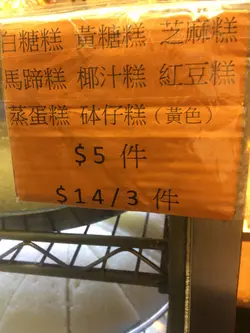 白糖糕 黃糖糕 芝麻糕
馬蹄糕 椰汁糕 紅豆糕
蒸蛋糕 砵仔糕（黃色）
$5 件
$14/3 件